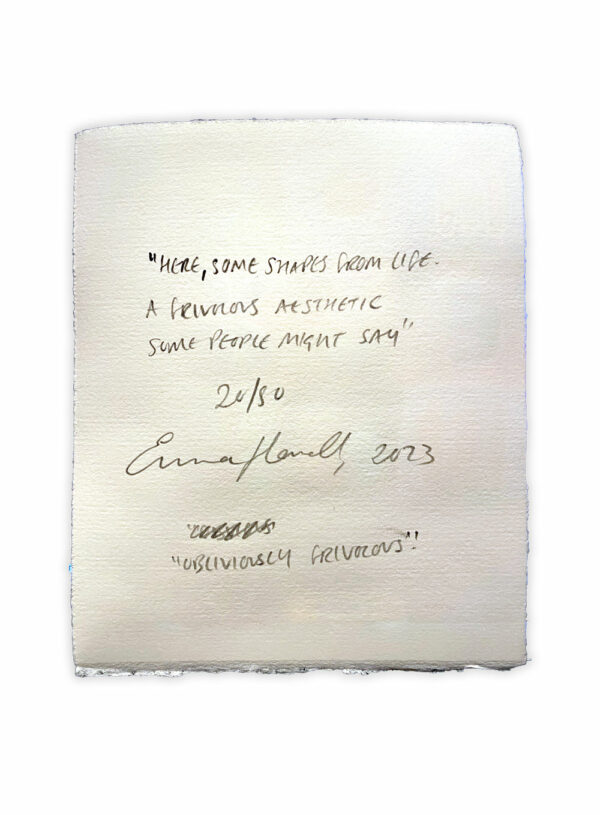 "HERE, SOME SHAPES FROM LIFE.
A FRIVOLOUS AESTHETIC
SOME PEOPLE MIGHT SAY"
20/50
Emma Howell, 2023
"OBLIVIOUSLY FRIVOLOUS".